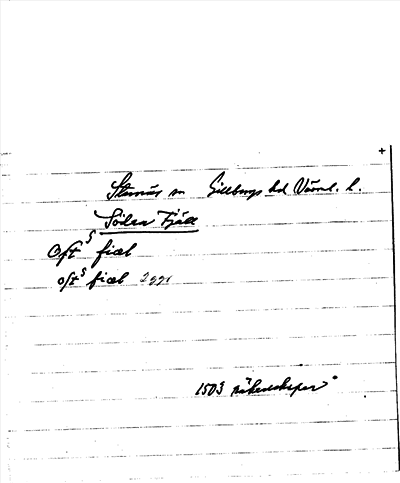 +
Stavnäs sn Gillbergs hd Värml. l.
Södra Fjäll
Oftˢ fiæl
oftˢ fiæl 2 ggr
1503 räkenskaper